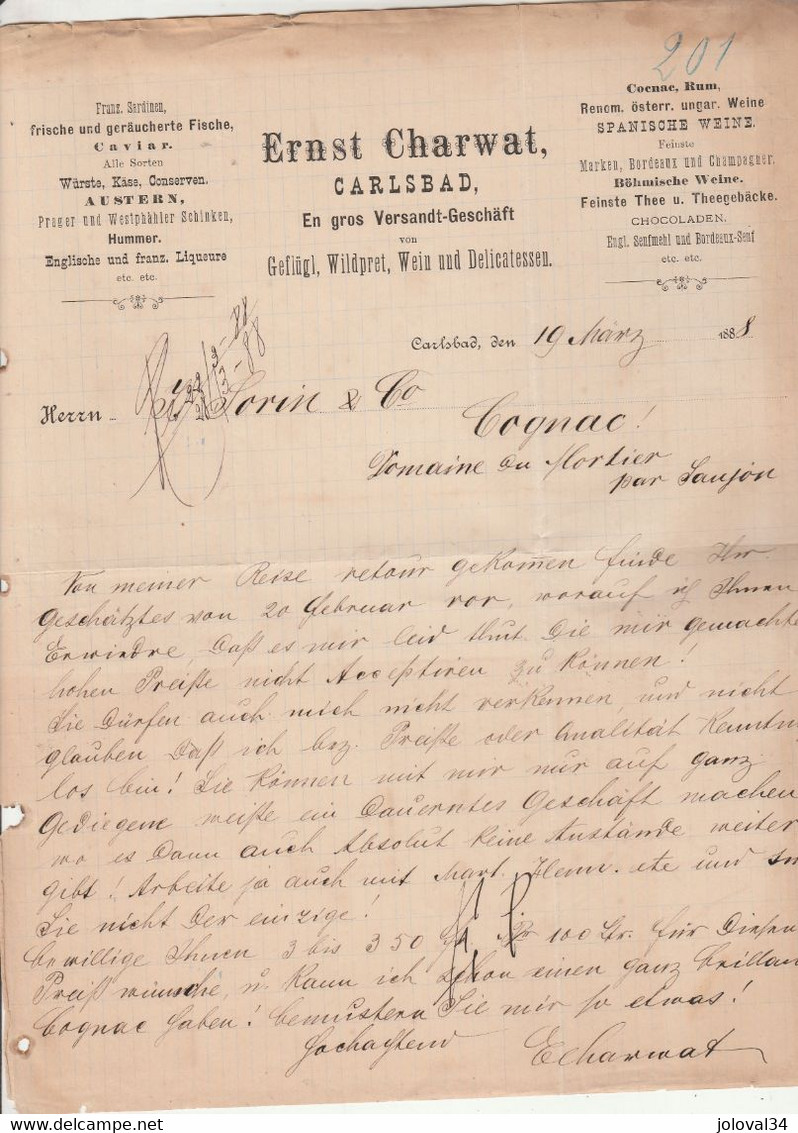 201
Franz. Sardinen,
frische und geräucherte Fische,
Caviar.
Alle Sorten
Würste, Käse, Conserven.
AUSTERN,
Prager und Westphähler Schinken,
Hummer.
Englische und franz. Liqueure
etc. etc.
Ernst Charwat,
CARLSBAD,
En gros Versandt-Geschäft
von
Geflügl, Wildpret, Wein und Delicatessen.
Cocnac, Rum,
Renom. österr. ungar. Weine
SPANISCHE WEINE.
Feinste
Marken, Bordeaux und Champagner,
Böhmische Weine.
Feinste Thee u. Theegebäcke.
CHOCOLADEN.
Engl. Senfmehl und Bordeaux-Senf
etc. etc.
Carlsbad, den 19 März 1888
Herrn Sorin & Co
Cognac!
Domaine du Mortier
par Saujon
Von meiner Reise retour gekommen finde Ihr
Geschätztes von 20 Februar vor, worauf ich Ihnen
Erwiedre, Daß es mir leid thut Die mir gemachte
hohen Preiße nicht Acceptiren zu können!
Sie Dürfen auch mich nicht verkennen, und nicht
glauben, Daß ich bez. Preiße oder Qualität Kenntn
los bin! Sie können mit mir nur auf ganz
Gediegene weiße ein Dauerntes Geschäft machen
wo es Dann auch Absolut keine Anstände weiter
gibt! Arbeite ja auch mit Mart. Henn. etc und
Sie nicht Der einzige!
bewillige Ihnen 3 bis 3 50 100 Ltr. für Diesen
Preiß wünsche, u. kann ich schon einen ganz brillan
Cognac haben! bemustern Sie mir so etwas!
Hochachtend
ECharwat
delcampe.net
joloval34